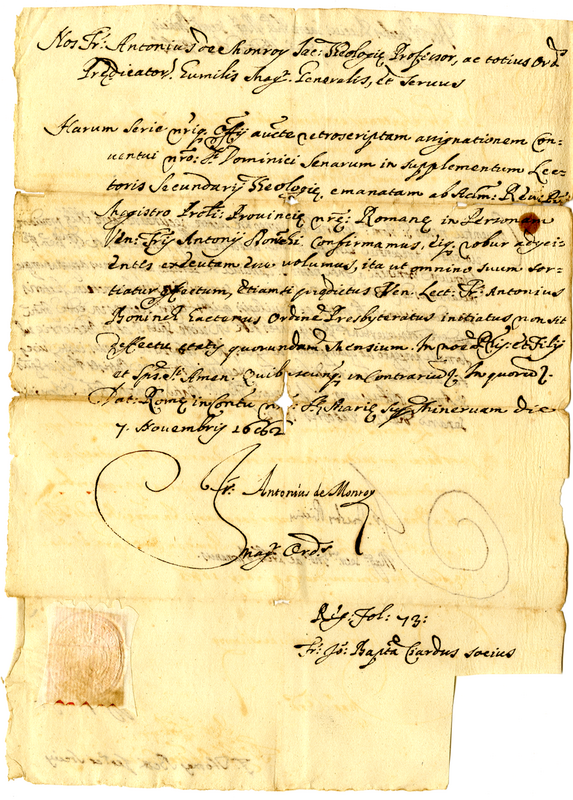 Nos Fr. Antonius de Monroy Sac: Theologię Professor, ac totius Ord:
Prędicator: Humilis Mag:r Generalis, et servus
Harum serie nrīq. officij aucte retroscriptam assignationem Con-
ventui nro. S. Dominici Senarum in supplementum Lec-
toris Secundarij Theologię, emanatam ab Adm: Rev: P.
Magistro Prōli: Provincię nrę: Romanę in Personam
Ven: Frīs Antonij confirmamus, eiq. robur adijci-
entes volumus, ita ut omnino suum sor-
tiatur effectum, Etiamsi prędictus Ven. Lect: Fr: Antonius
hactenus Ordine Presbyteratus initiatus non sit
defectu ętatis quorundam mensium. In noīe Patris, et Filij
et Sp: S: Amen. Quibuscunq. in contrarium In quorum
Dat: Romę in Conūtu nrō S: Marię super Minervam die
7. Novembrij 1682
Fr. Antonius de Monroy
Mag:r Ord:s
Reg: Fol: 73:
Fr: Jo: Bapta socius